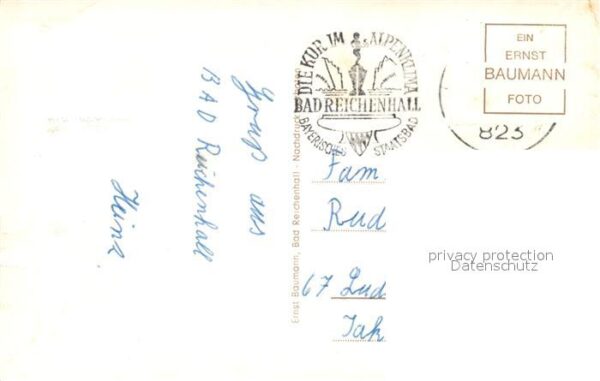 Gruß aus
BAD Reichenhall
Heinz.
Ernst Baumann, Bad Reichenhall - Nachdruck
DIE KUR IM ALPENKLIMA
BAD REICHENHALL
BAYERISCHES STAATSBAD
EIN
ERNST
BAUMANN
FOTO
823
Fam
Rud
67 Lud
Jak
privacy protection
Datenschutz